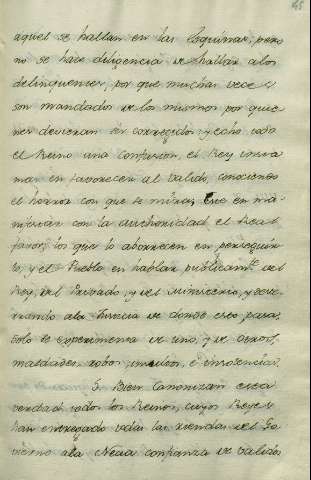 aquel se hallan en las Esquinas; pero
no se hace diligencia de hallar alos
delinquentes, por que muchas veces
son mandados de los mismos por quie
nes devieran ser corregidos: y echo todo
el Reino una Confusion, el Rey
mas en favorecer al valido, conociendo
el horror con que se mira; este en ma-
con la authoridad el Real
favor; los que lo aborrecen en perseguir
lo, y el Pueblo en hablar publicamte. del
Rey, del Privado, y del Ministerio, y
ala Justicia de donde
solo se experimenta de uno, y de otros,
maldades, robos, insultos, é insolencias.
5. Bien Canonizan esta
verdad todos los Reinos, cuyos Reyes
han entregado todas las riendas del Go
vierno ala Necia confianza de validos